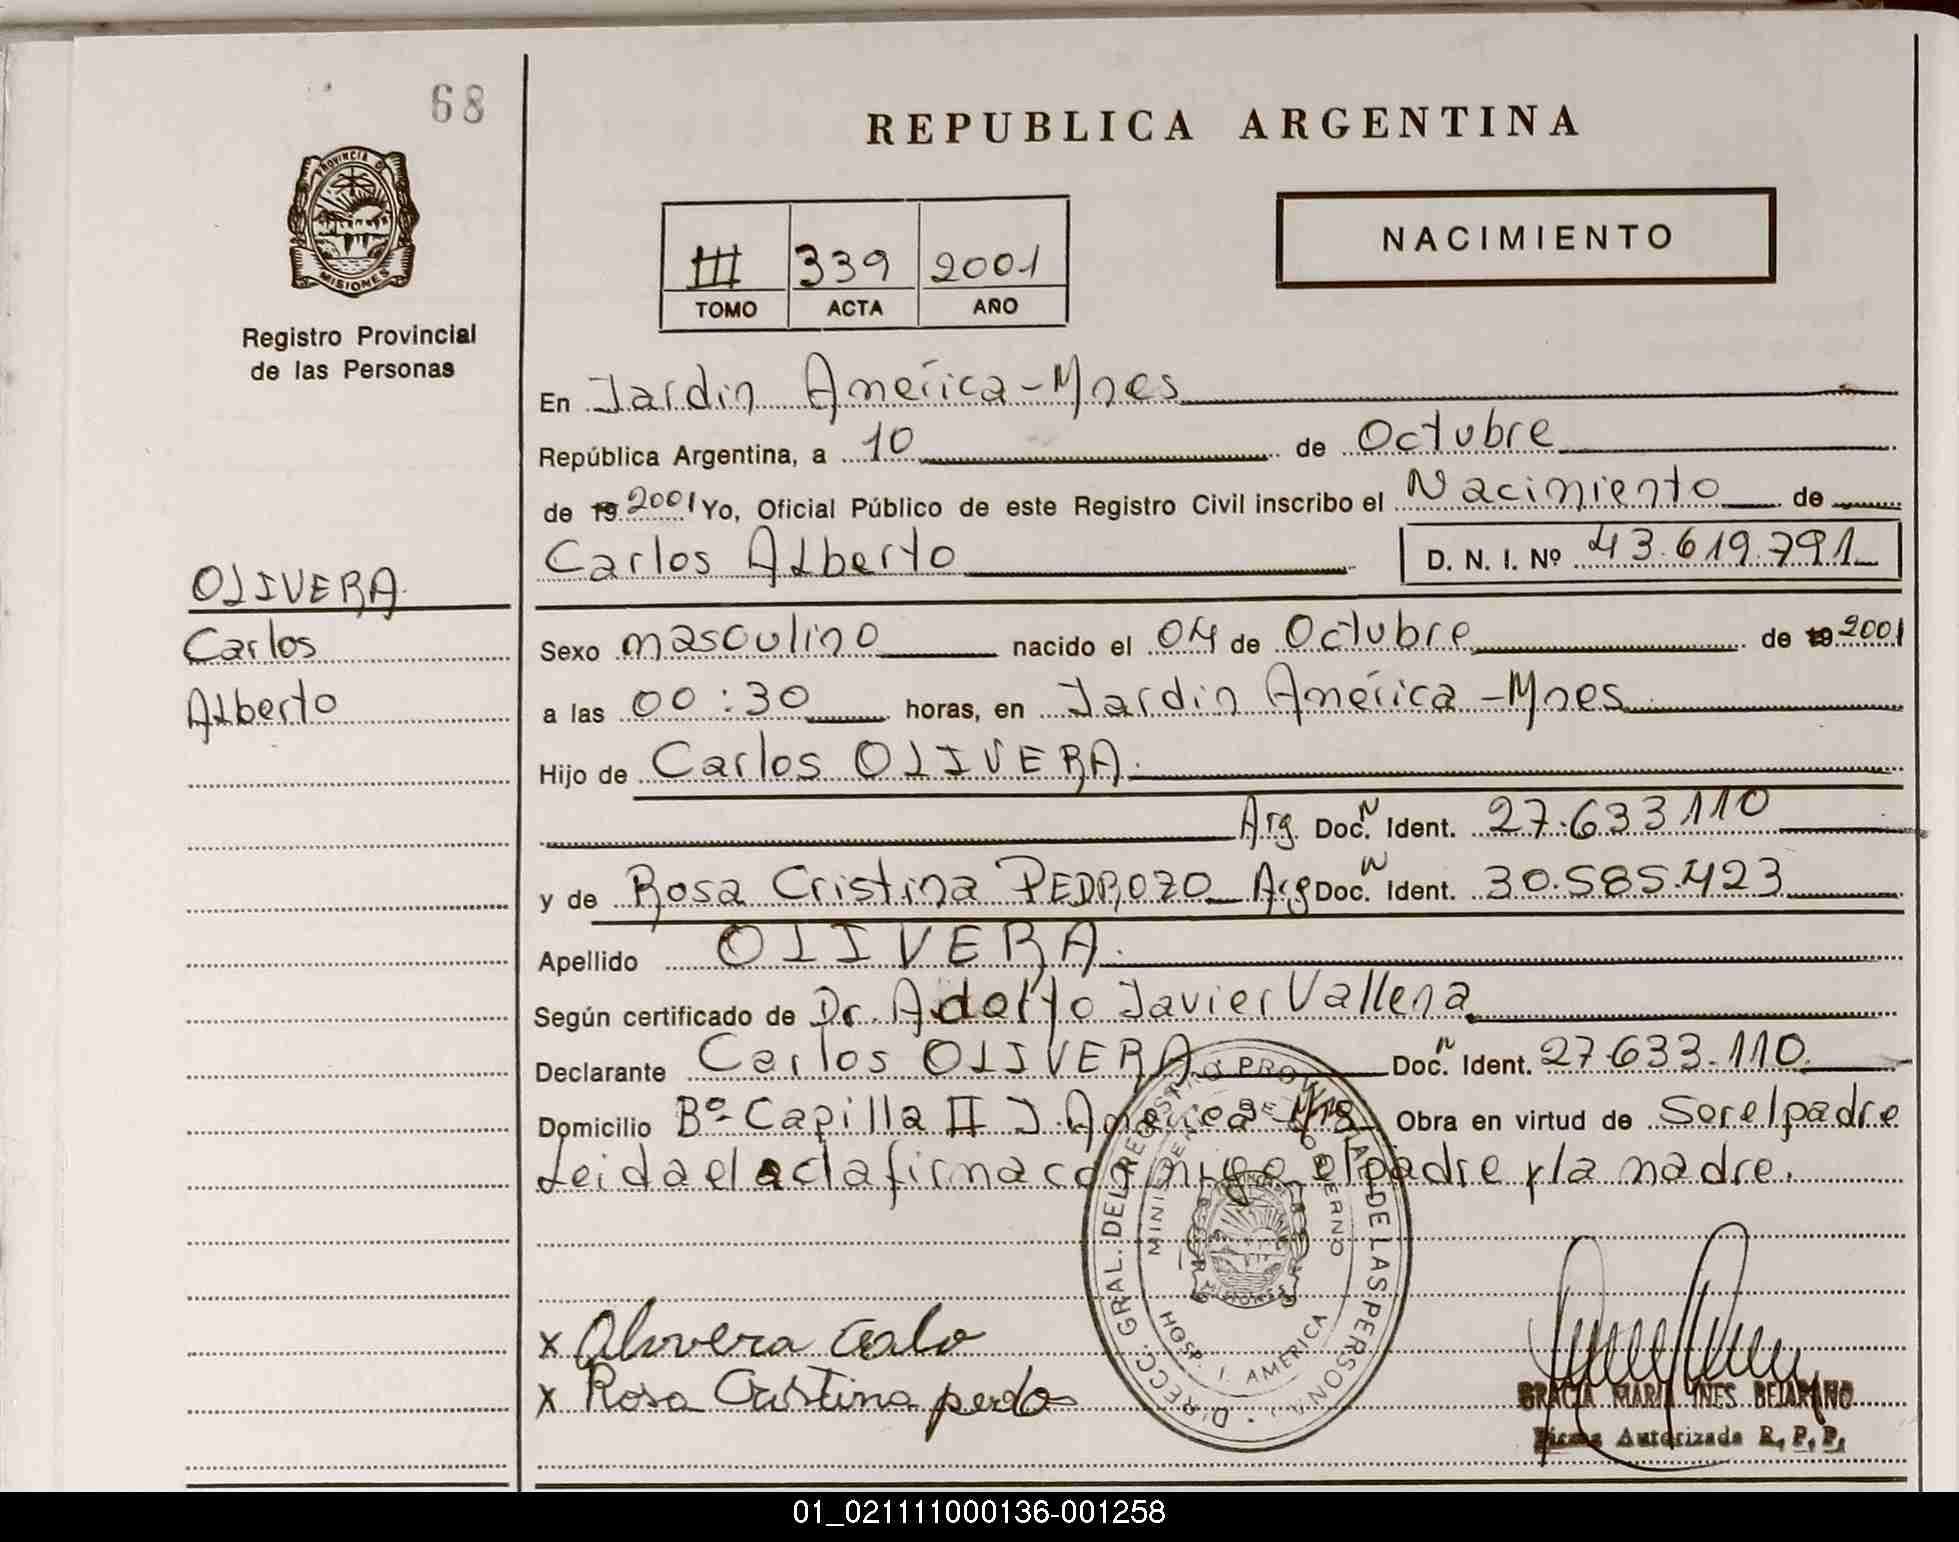 68
PROVINCIA DE
MISIONES
Registro Provincial
de las Personas
OLIVERA
Carlos
Alberto
REPUBLICA ARGENTINA
III 339 2001
TOMO ACTA AÑO
NACIMIENTO
En Jardin América - Mnes
República Argentina, a 10 de Octubre
de 19 2001 Yo, Oficial Público de este Registro Civil inscribo el Nacimiento de
Carlos Alberto D. N. I. Nº 43.619.791
Sexo masculino nacido el 04 de Octubre de 19 2001
a las 00:30 horas, en Jardin América - Mnes
Hijo de Carlos OLIVERA.
Arg. Doc. N Ident. 27.633.110
y de Rosa Cristina PEDROZO Arg Doc. N Ident. 30.585.423
Apellido OLIVERA.
Según certificado de Dr. Adolfo Javier Vallena
Declarante Carlos OLIVERA Doc. N Ident. 27.633.110.
Domicilio Bº Capilla II J. América Mnes Obra en virtud de Ser el padre
Leida el acta firma conmigo el padre y la madre.
DIRECC. GRAL. DEL REGISTRO PROVINCIAL DE LAS PERSONAS
MINISTERIO DE GOBIERNO
HOSP. J. AMERICA
MISIONES
x Olivera Calo
x Rosa Cristina pedo
GRACIA MARIA INES BEJARANO
Firma Autorizada R. P. P.
01_021111000136-001258